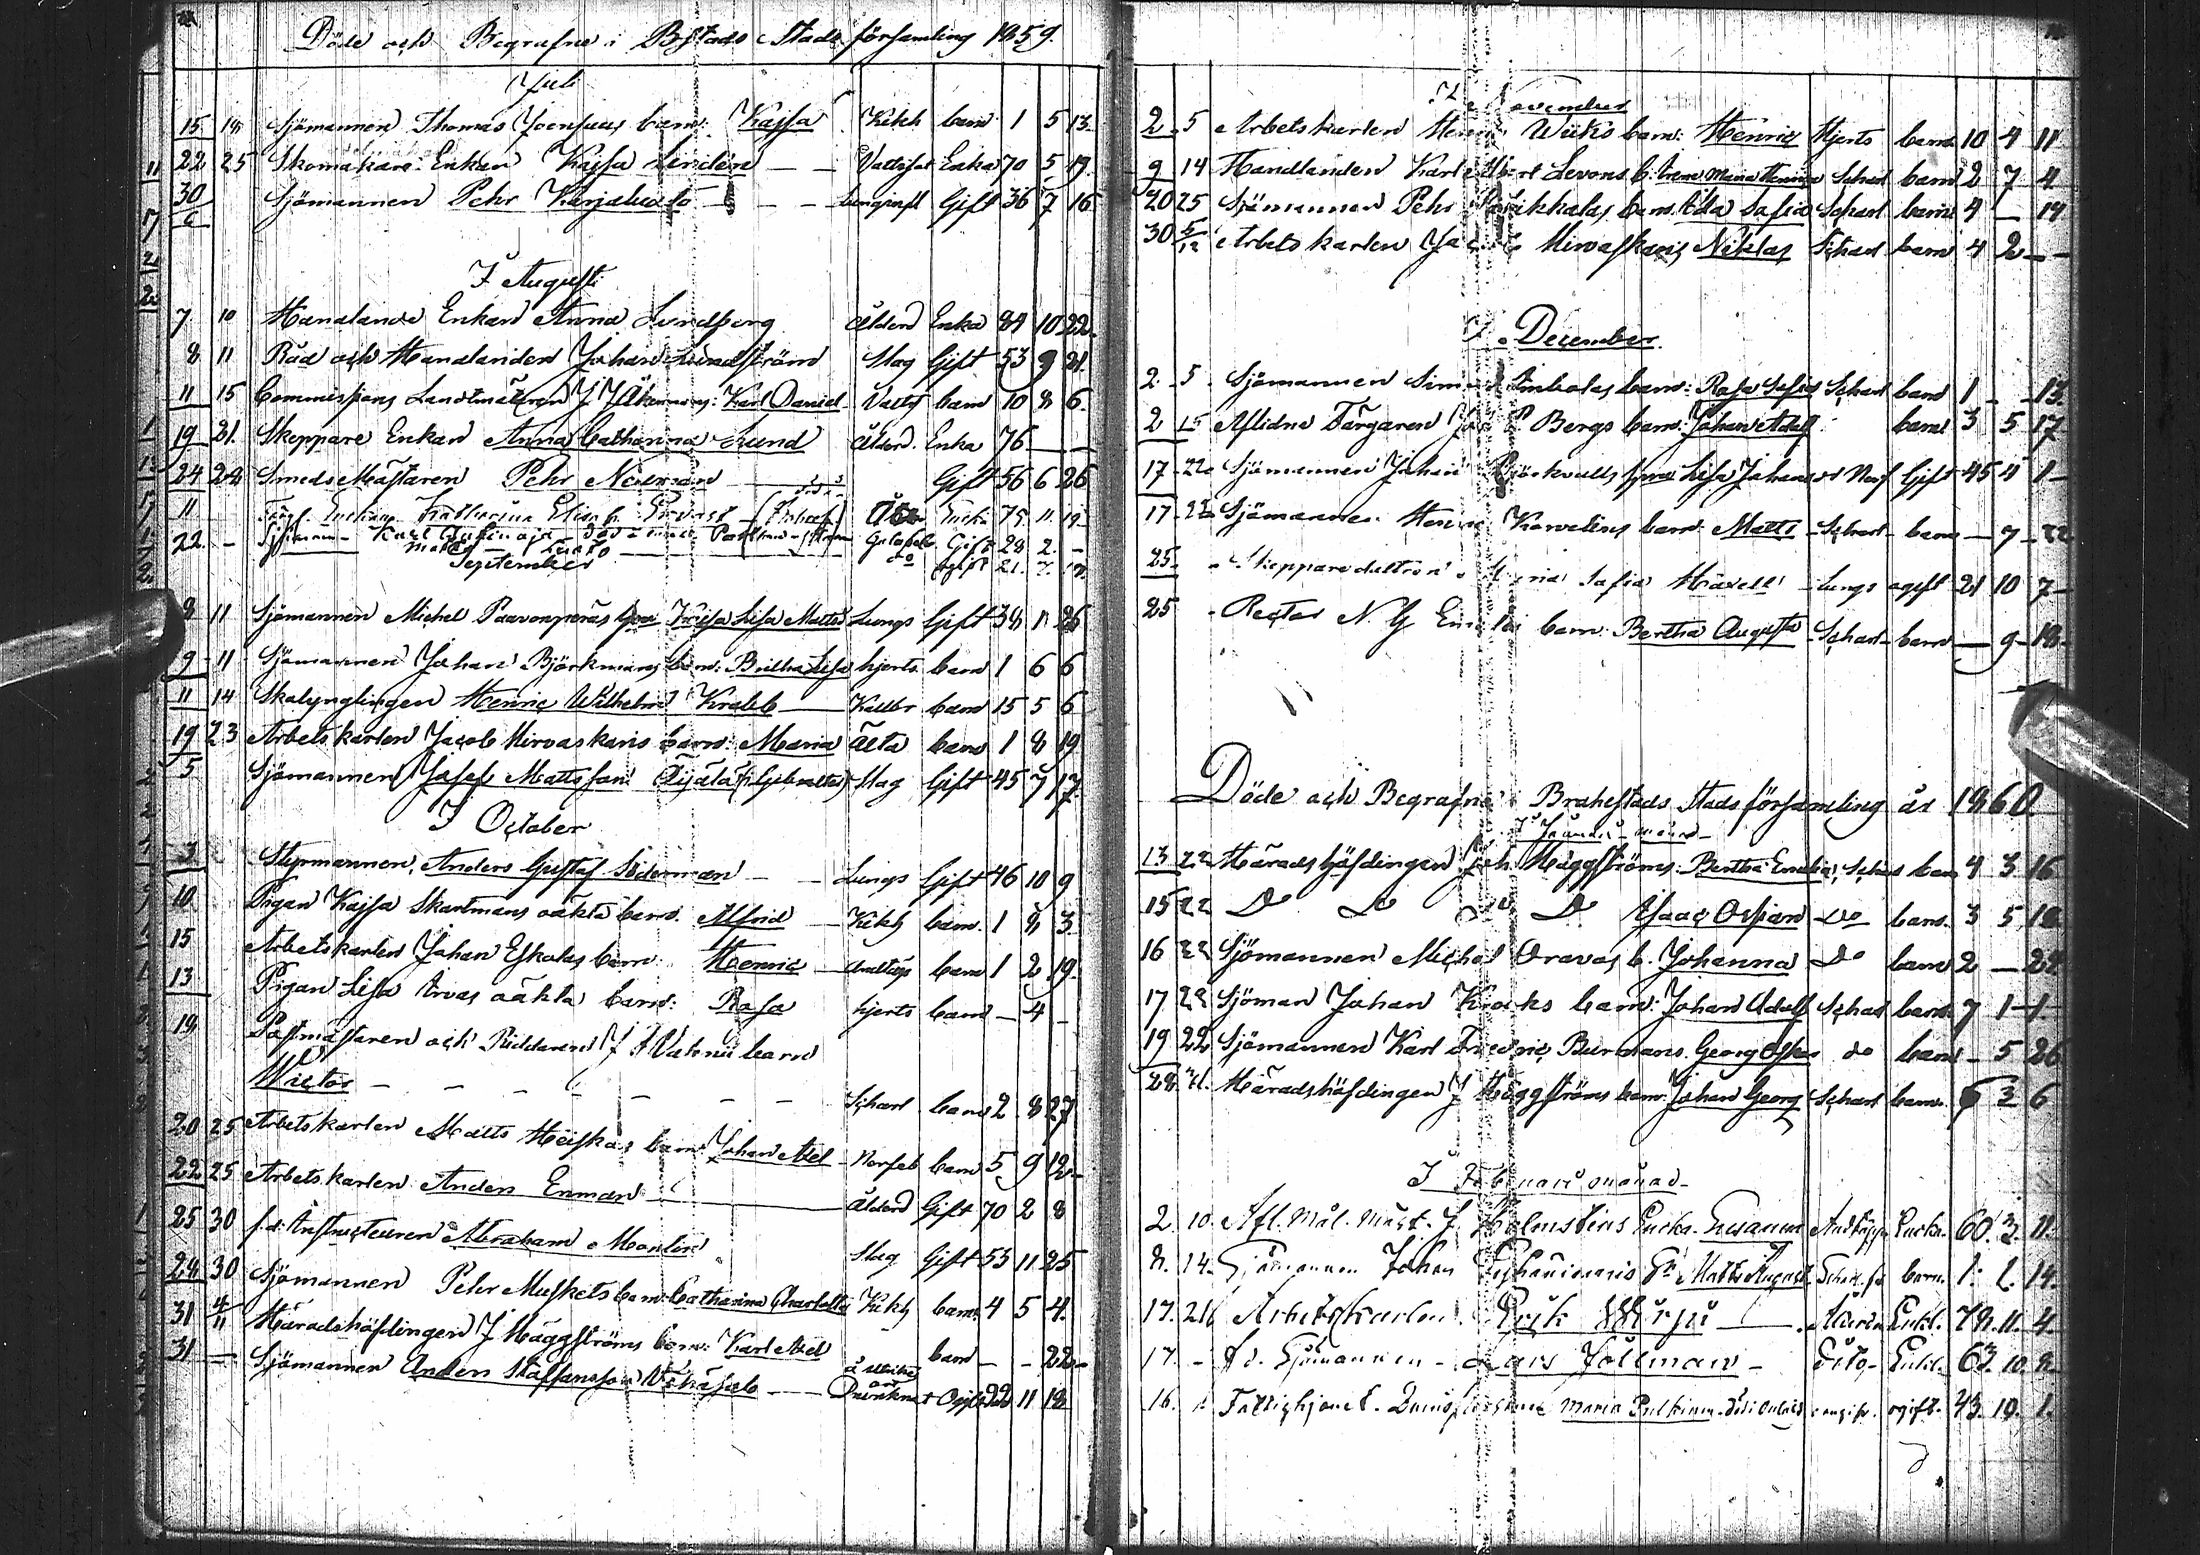 Döde och Begrafne i Bstads Stads församling 1859.
Juli
15 18 Sjömannen Thomas Joensuus barn: Kajsa Kikh barn 1 5 13
22 25 Skomakare Enkan Kajsa Lindén Vattsot Enka 70 5 19
30 Sjömannen Pehr Karjaluoto Lunginfl Gift 36 7 16
I Augusti
7 10 Handlande Enkan Anna Lundberg Ålderd Enka 84 10 22
8 11 Råd och Handlanden Johan Lundström Slag Gift 53 9 21
11 15 Commissions Landtmätaren J J Åkermans: Karl Daniel Vatts barn 10 8 6
19 21 Skeppare Enkan Anna Catharina Lund Ålderd. Enka 76 — —
24 28 Smeds Mästaren Pehr Neuman Gift 56 6 26
11 Enkan Katharina Elisab. Enka 75 11
22 - Sjöman Karl Gift 28 2 -
September
8 11 Sjömannen Michel Paavonperäs hru Kajsa Lisa Matts Lungs Gift 38 11 26
9 11 Sjömannen Johan Björkmans barn: Britha Lisa hjerts barn 1 6 6
11 14 Skolynglingen Henric Wilhelm Krabb Kallbr barn 15 5 6
19 23 Arbetskarlen Jacob Hirvaskaris barn: Maria Älta barn 1 8 19
5 Sjömannen Josef Mattsson Äijälä (i Gibraltar) Slag Gift 45 7 17
I October
3 Styrmannen, Anders Gustaf Söderman Lungs Gift 46 10 9
10 Pigan Kajsa Skartmans oäkta barn. Alfrid Kikh barn. 1 8 3
15 Arbetskarlen Johan Eskolas barn: Henric Andtäp barn 1 2 19
13 Pigan Lisa Arvas oäkta barn: Rosa hjerts barn — 4 —
19 Postmästaren och Riddaren J F Vahnii barn
Victor Scharl barn 2 8 27
20 25 Arbetskarlen Matts Heiskas barn Johan Abel Nerfeb barn 5 9 12
22 25 Arbetskarlen Anders Enman Ålderd Gift 70 2 8
25 30 f.d. Instructeuren Abraham Manlin Slag Gift 53 11 25
28 30 Sjömannen Pehr Muskets barn: Catharina Charlotta Kikh barn 4 5 4
31 4/11 Häradshöfdingen J Häggströms barn: Karl Abel barn — - 22
31 — Sjömannen Anders Staffansson Drunknat Ogift 22 11 18
I November
2 5 Arbetskarlen Henric Wiiks barn: Henric Hjerts barn 10 4 11
9 14 Handlanden Karl Albert Levons b. Irene Maria Scharl barn 2 7 4
20 25 Sjömannen Pehr barn Ida Sofia Scharl barn 4 — 14
30 5/12 Arbetskarlen Jacob Hirvaskaris Niklas Scharl barn 4 2 —
I December
2 5 Sjömannen Simon barn: Rosa Sofia Scharl barn 1 - 13
2 15 Aflidne Färgaren Bergs barn: Johan Adolf barn 3 5 17
17 22 Sjömannen Johan Björkvalls hru Lisa Johansd: Nerf Gift 45 4 1
17 22 Sjömannen Henric Karvelins barn: Matts Scharl barn — 7 22
25 Skepparedottren Maria Sofia Häxell Lungs ogift 21 10 7
25 Rector N. G barn: Bertha Augusta Scharl barn — 9 18
Döde och Begrafne i Brahestads Stadsförsamling år 1860.
I Januari månad
13 22 Häradshöfdingen Joh Häggströms: Bertha Emilia, Scharl barn 4 3 16
15 22 Do Do Do Do Isaac Osian Do barn. 3 5 18
16 22 Sjömannen Michel Oravas b. Johanna Do barn 2 — 22
17 22 Sjöman Johan Krooks barn: Johan Adolf Scharl barn 7 1 1
19 22 Sjömannen Karl Fredric Burmans Georg Oskar do barn - 5 26
28 31. Häradshöfdingen J Häggströms barn: Johan Georg Scharl barn. 6 3 6
I Februari månad
2. 10. Afl. Mål. Mäst. J. Holmstens Enka Susanna Andtäppa Enka. 60. 3. 11.
8. 14. Sjömannen Johan Matts August Scharl. barn. 1. 1. 14.
17. 21 Arbetskarlen Erik Ålderd. Enkl. 78. 11. 4.
17. - F.d. Sjömannen Lars Follman Enkl. 63. 10. 8.
16. Fattighjonet. Maria Pulkinen ogift. 43. 10. 1.